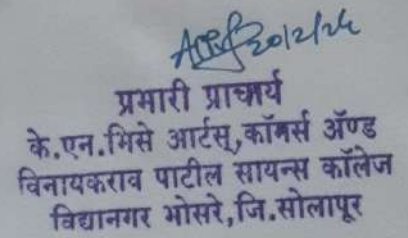 20/2/24
प्रभारी प्राचार्य
के.एन.भिसे आर्टस्,कॉमर्स ॲण्ड
विनायकराव पाटील सायन्स कॉलेज
विद्यानगर भोसरे,जि.सोलापूर